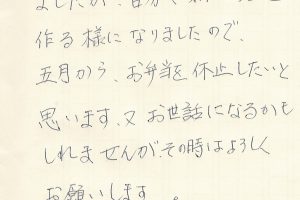 ましたが、自分で
作る様になりましたので、
五月から、お弁当を休止したいと
思います、又お世話になるかも
しれませんが、その時はよろしく
お願いします。